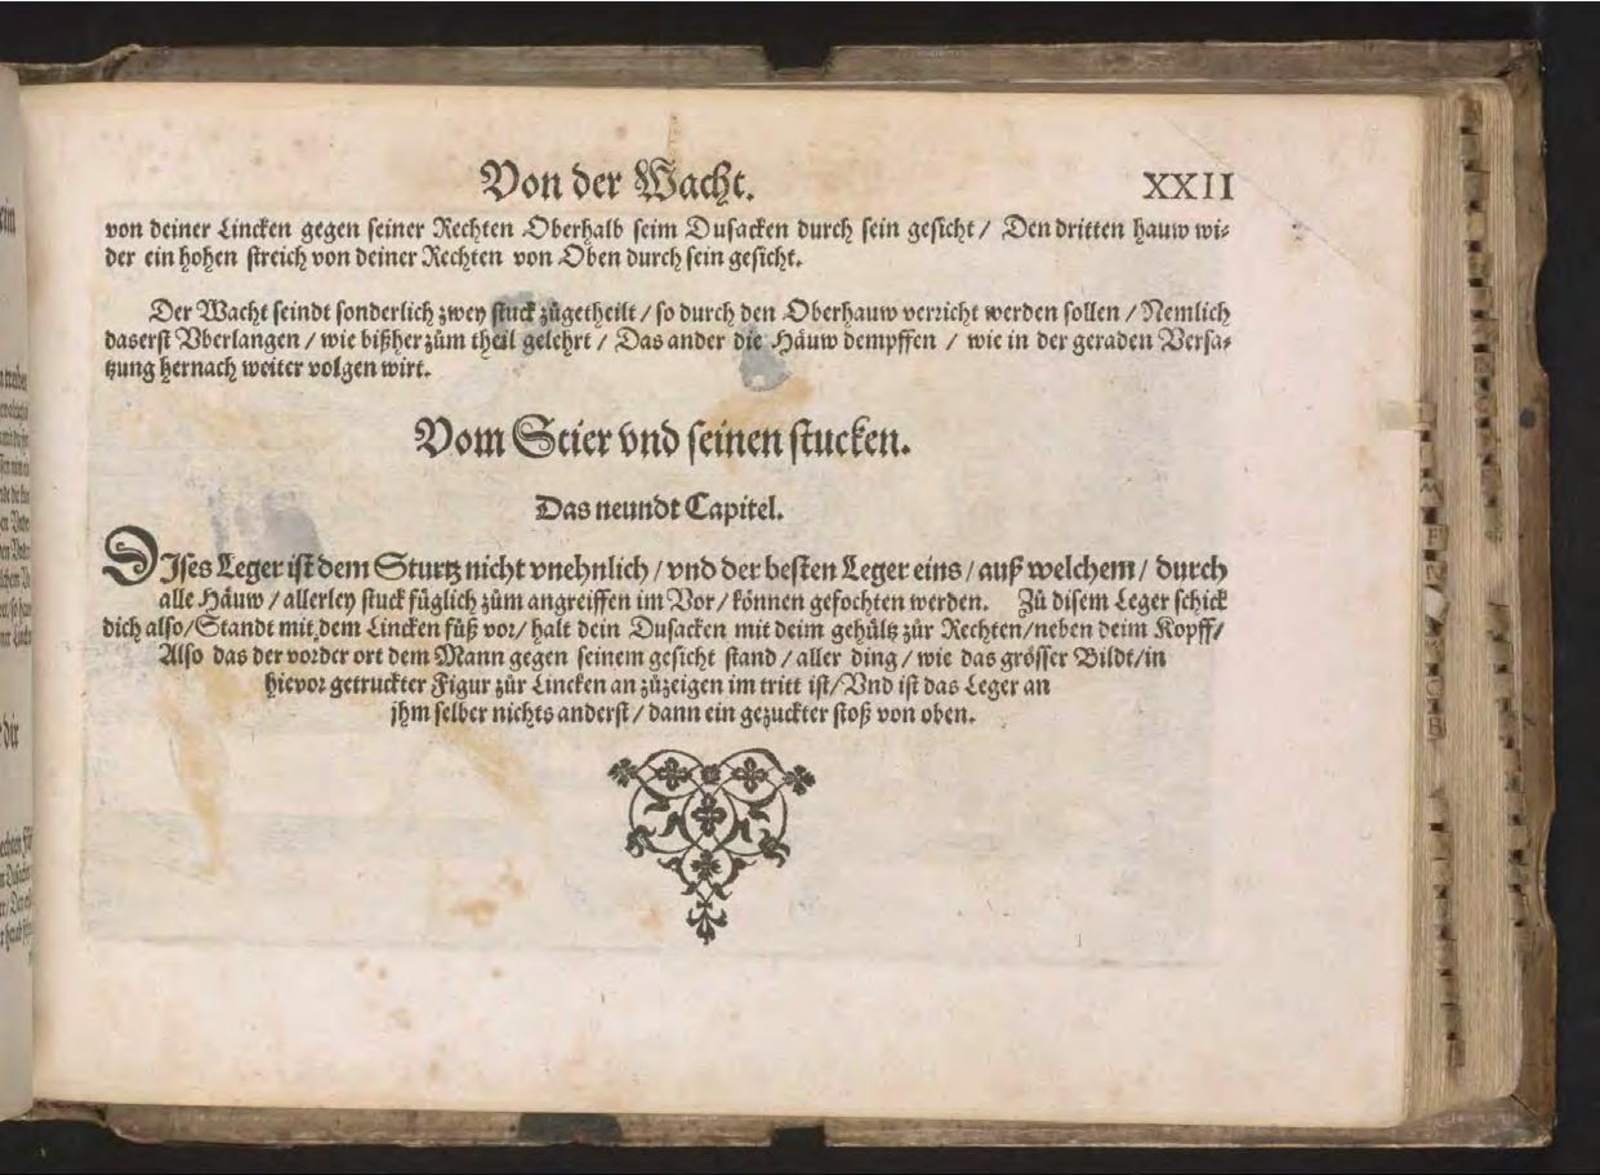 Von der Wacht. XXII
von deiner Lincken gegen seiner Rechten Oberhalb seim Dusacken durch sein gesicht / Den dritten hauw wi⸗
der ein hohen streich von deiner Rechten von Oben durch sein gesicht.
Der Wacht seindt sonderlich zwey stuck zůgetheilt / so durch den Oberhauw verricht werden sollen / Nemlich
daserst Vberlangen / wie bißher zům theil gelehrt / Das ander die Häuw dempffen / wie in der geraden Versa⸗
tzung hernach weiter volgen wirt.
Vom Stier vnd seinen stucken.
Das neundt Capitel.
DIses Leger ist dem Sturtz nicht vnehnlich / vnd der besten Leger eins / auß welchem / durch
alle Häuw / allerley stuck füglich zům angreiffen im Vor / können gefochten werden. Zů disem Leger schick
dich also / Standt mit dem Lincken fůß vor / halt dein Dusacken mit deim gehültz zůr Rechten / neben deim Kopff /
Also das der vorder ort dem Mann gegen seinem gesicht stand / aller ding / wie das grösser Bildt / in
hievor getruckter Figur zůr Lincken an zůzeigen im tritt ist / Vnd ist das Leger an
jhm selber nichts anderst / dann ein gezuckter stoß von oben.